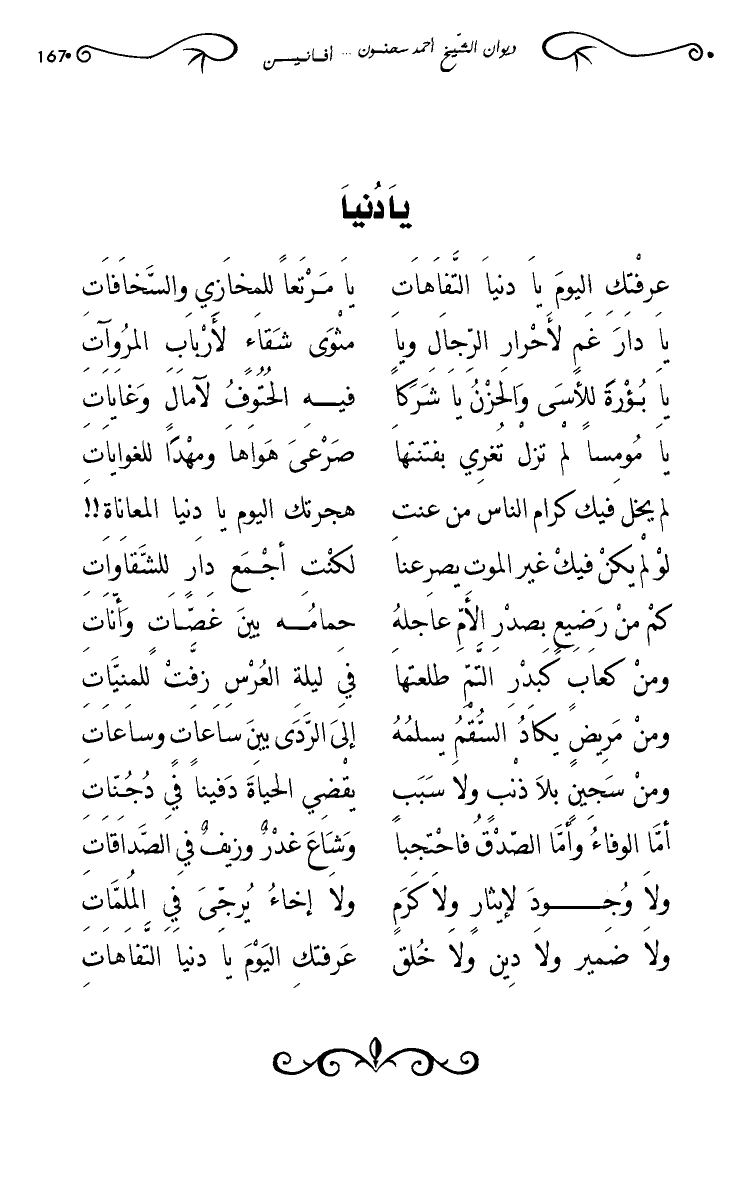 ديوان الشّيخ احمد سحنون ... أفـانـيـــن 167
يا دُنيا
عرفْتكِ اليومَ يا دنيا التَّفاهَاتِ يا مَـرْتَعاً للمخازِي والسَّخَافَاتِ
يا دارَ غمٍ لأَحْرارِ الرِّجالِ ويا مثْوَى شقَاء لأَرْبابِ المرُوآتِ
يا بُـؤْرةً للأسَى وَالحزْنُ يا شَرَكاً فيـــه الحُتُوفُ لآمالٍ وَغاياتِ
يا مُومساً لمْ تزلْ تُغرِي بفتنتها صَرْعىَ هَواها ومهْدًا للغواياتِ
لم يخل فيك كرام الناس من عنت هجرتك اليوم يا دنيا المعاناة!!
لوْ لمْ يكنْ فيكْ غير الموت يصرعنا لكنْتِ أجْـمَع دارٍ للشَّقاواتِ
كمْ منْ رَضِيعٍ بصدْرِ الأَمِّ عاجلهُ حمامُـــه بينَ غصّـاتٍ وَأنَّاتِ
ومنْ كعابٍ كَبدْرِ التّمِّ طلعتها في ليلةِ العُرْسِ زفّتْ للمنيَّاتِ
ومنْ مَرِيضٍ يكادُ السُّقْمُ يسلمُهُ إلىَ الرَّدَى بينَ ساعَاتٍ وساعَاتِ
ومنْ سَجينٍ بلاَ ذنْبٍ ولا سَبَبٍ يقْضِي الحياةَ دَفيناً فيِ دُجُنّاتِ
أمَّا الوفاءُ وأمَّا الصّدْقُ فاحْتجبا وَشاعَ غدْرٌ وزيفٌ في الصَّداقاتِ
ولا وُجــــــودَ لإيثارٍ ولا كَرَمٍ ولا إخاءُ يُرجّىَ فيِ المُلمَّاتِ
ولا ضمير ولا دِين ولا خُلق عَرفتكِ اليَوْمَ يا دنيا التَّفاهاتِ